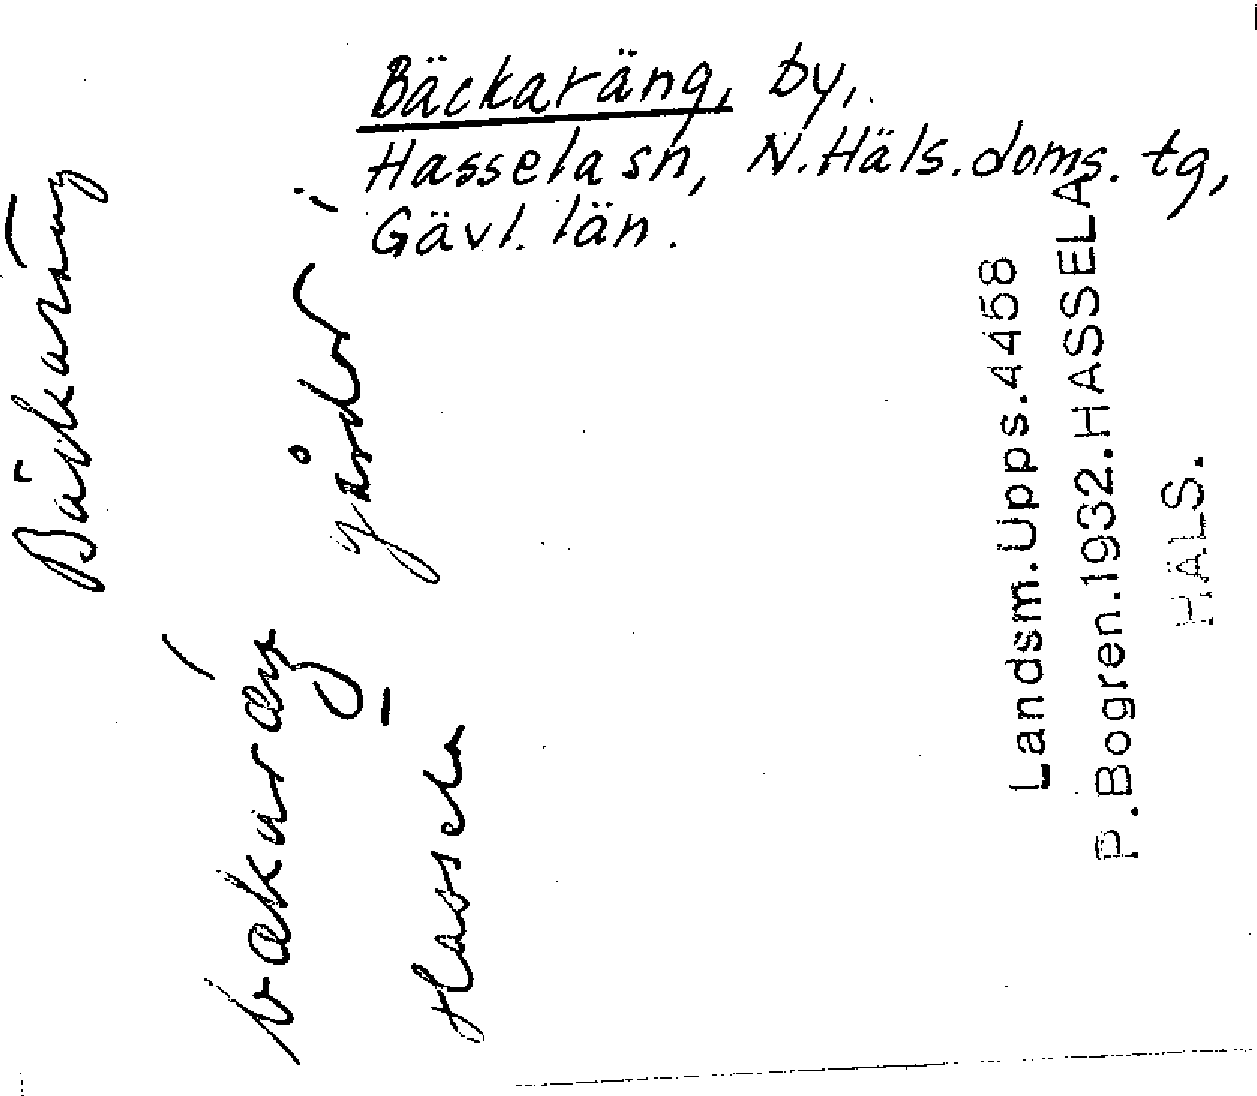 Bäckaräng, by,
Hasselasn, N.Häls.doms.tg,
Gävl. län.
Bäckaräng
gårdar i
Hassela
Landsm.Upps.4458
P.Bogren.1932.HASSELA
HÄLS.